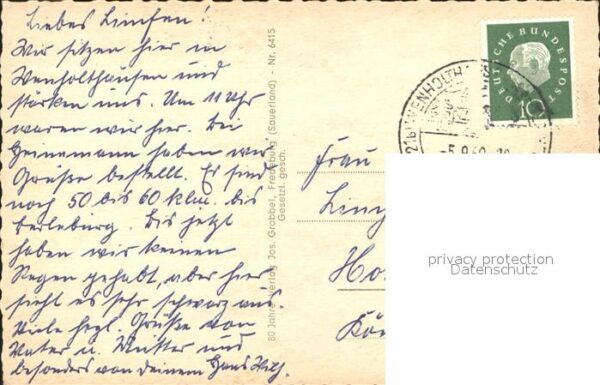 Liebes Linchen!
Wir sitzen hier in
Wenholthausen und
stärken uns. Um 11 Uhr
waren wir hier. Bei
Heinemann haben wir
Grüße bestellt. Es sind
noch 50 bis 60 klm. bis
Berleburg. Bis jetzt
haben wir keinen
Regen gehabt, aber hier
sieht es sehr schwarz aus.
Viele hrzl. Grüße von
Vater u. Mutter und
besonders von deinem Hans Wilh.
80 Jahre Verlag Jos. Grobbel, Fredeburg (Sauerland) - Nr. 6415
Gesetzl. gesch.
WENHOLTH
DEUTSCHE BUNDESPOST
10
Frau
privacy protection
Datenschutz